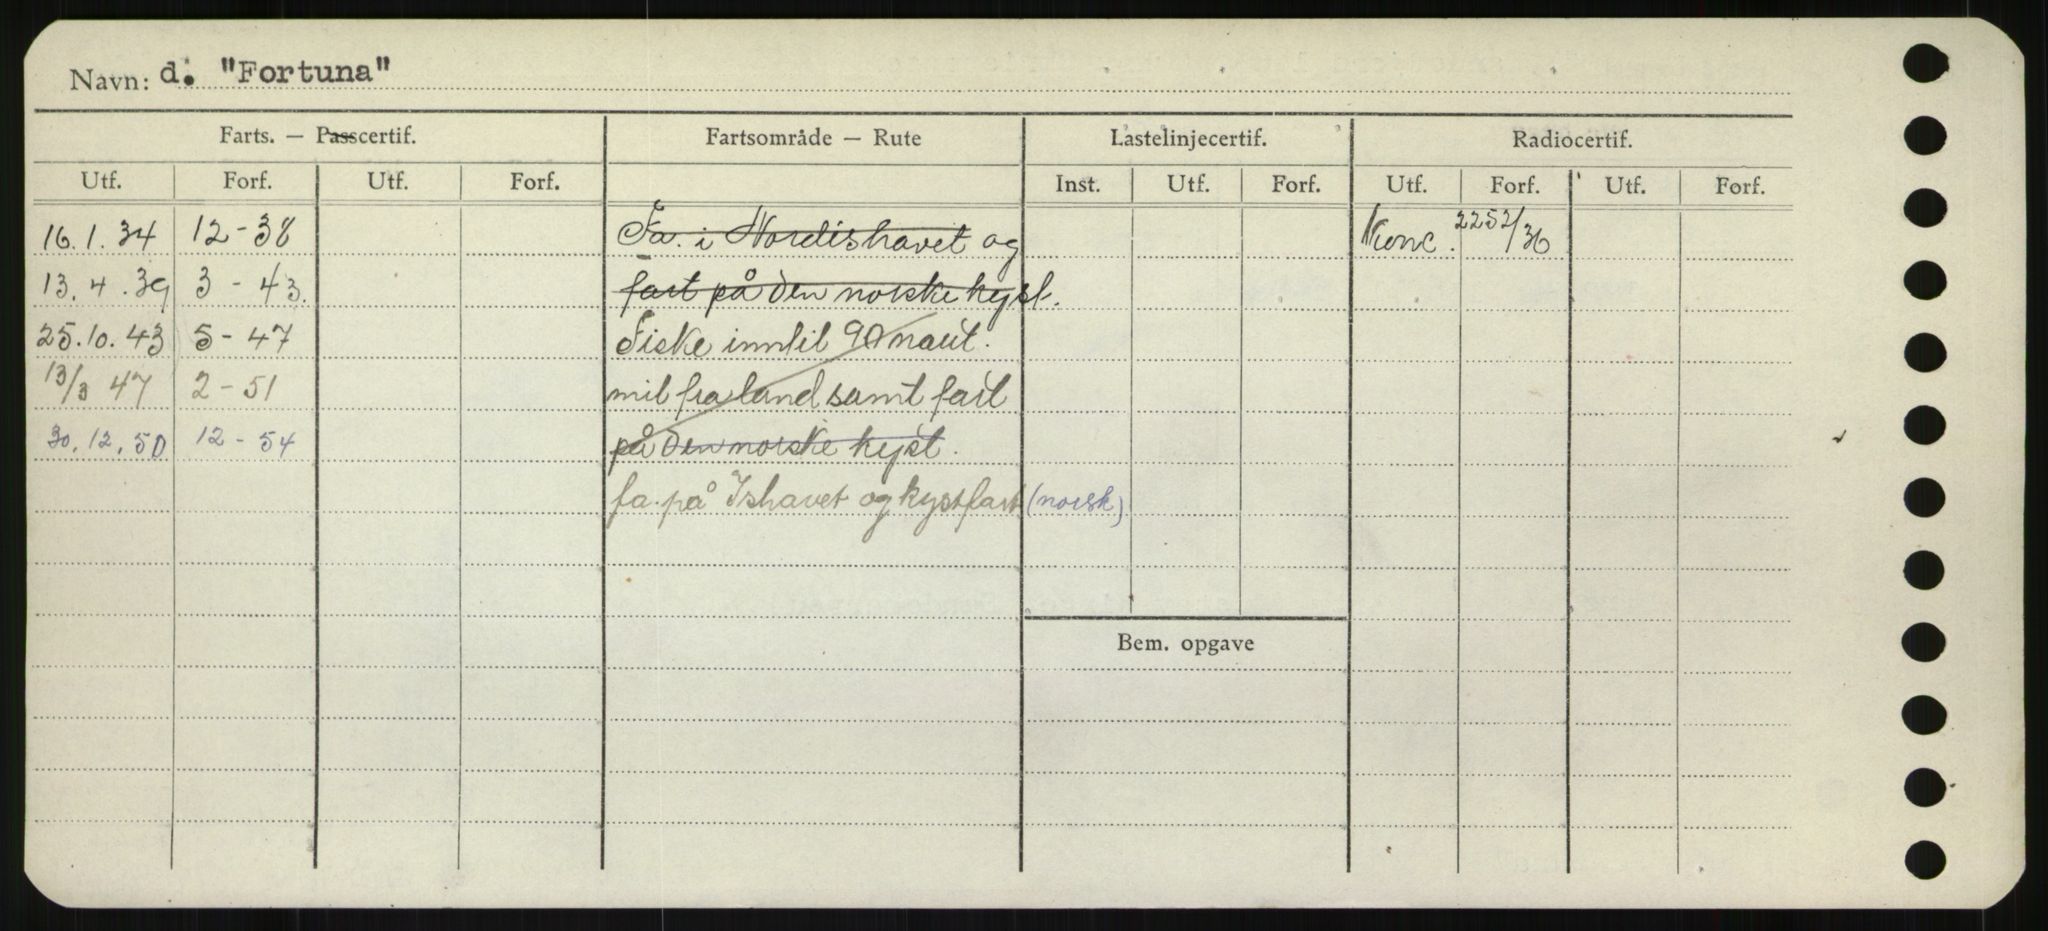 Navn: d. "Fortuna"
Farts. — Passcertif. Fartsområde — Rute Lastelinjecertif. Radiocertif.
Utf. Forf. Utf. Forf. Inst. Utf. Forf. Utf. Forf. Utf. Forf.
16.1.34 12-38 Fa. i Nordishavet og 2252/36
13.4.39 3-43. fart på den norske kyst.
25.10.43 5-47 Fiske inntil 90 naut.
13/3 47 2-51 mil fra land samt fart
30.12.50 12-54 på den norske kyst.
fa. på Ishavet og kystfart (norsk)
Bem. opgave